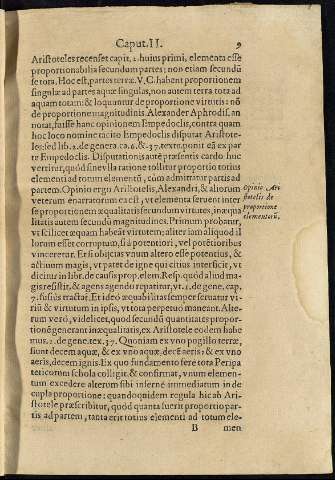 Caput. II. 9
Aristoteles recenset capit. 2. huius primi, elementa esse
proportionabilia secundum partes: non etiam secundū
se tota. Hoc est, partes terræ. V. C. habent proportionem
singulæ ad partes aquæ singulas, non autem terra tota ad
aquam totam: & loquuntur de proportione virtutis: nō
de proportione magnitudinis. Alexander Aphrodis. an
notat, fuisse hanc opinionem Empedoclis, contra quam
hoc loco nomine tacito Empedoclis disputat Aristote-
les: sed lib. 2. de genera. ca. 6. & 37. texto. ponit eā ex par
te Empedoclis. Disputationis autē præsentis cardo huc
vertitur, quòd sine vlla ratione tollitur proportio totius
elementi ad totum elementū, cùm admittatur partis ad
partem. Opinio ergo Aristotelis, Alexandri, & aliorum
veterum enarratorum ea est, vt elementa seruent inter
se proportionem æqualitatis secundum virtutes, inæqua
litatis autem secundū magnitudines. Primum probatur,
vt scilicet æquam habeāt virtutem; aliter iam aliquod il
lorum esset corruptum, si à potentiori, vel potētioribus
vinceretur. Et si obijcias vnum altero esse potentius, &
actiuum magis, vt patet de igne qui citius interficit, vt
dicitur in libr. de causs. prop. elem. Resp. quòd aliud ma-
gis resistit, & agens agendo repatitur, vt. 1. de gene. cap.
7. fusiùs tractat. Et ideò æquabilitas semper seruatur vi-
riū & virtutum in ipsis, vt ita perpetuò maneant. Alte-
rum verò, videlicet, quòd secundū quantitatis propor-
tionē generant inæqualitatis, ex Aristotele eodem habe
mus. 2. de gene. tex. 37. Quoniam ex vno pugillo terræ,
fiunt decem aquæ, & ex vno aquæ. decē aeris; & ex vno
aeris, decem ignis. Ex quo fundamento ferè tota Peripa
teticorum schola colligit. & confirmat, vnum elemen-
tum excedere alterum sibi infernè immediatum in de
cupla proportione: quandoquidem regula hic ab Ari-
stotele præscribitur, quòd quanta fuerit proportio par-
tis ad partem, tanta erit totius elementi ad totum ele-
B men
Opinio Ari
stotelis de
proportione
elementorū.